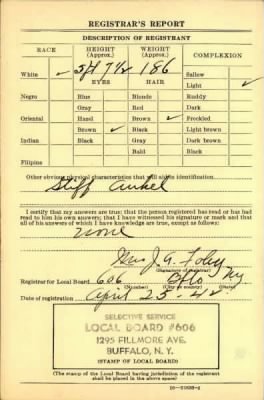 REGISTRAR'S REPORT
DESCRIPTION OF REGISTRANT
RACE HEIGHT (Approx.) WEIGHT (Approx.) COMPLEXION
5 ft 7 1/2 186
White ✓ EYES HAIR Sallow
Light ✓
Negro Blue Blonde Ruddy
Gray Red Dark
Oriental Hazel Brown ✓ Freckled
Brown ✓ Black Light brown
Indian Black Gray Dark brown
Bald Black
Filipino
Other obvious physical characteristics that will aid in identification
Stiff Ankel
I certify that my answers are true; that the person registered has read or has had
read to him his own answers; that I have witnessed his signature or mark and that
all of his answers of which I have knowledge are true, except as follows:
none
Mrs J. G. Foley
(Signature of registrar)
Registrar for Local Board 606 Bflo NY
(Number) (City or county) (State)
Date of registration April 25-42
SELECTIVE SERVICE
LOCAL BOARD #606
1295 FILLMORE AVE.
BUFFALO, N. Y.
(STAMP OF LOCAL BOARD)
(The stamp of the Local Board having jurisdiction of the registrant
shall be placed in the above space)